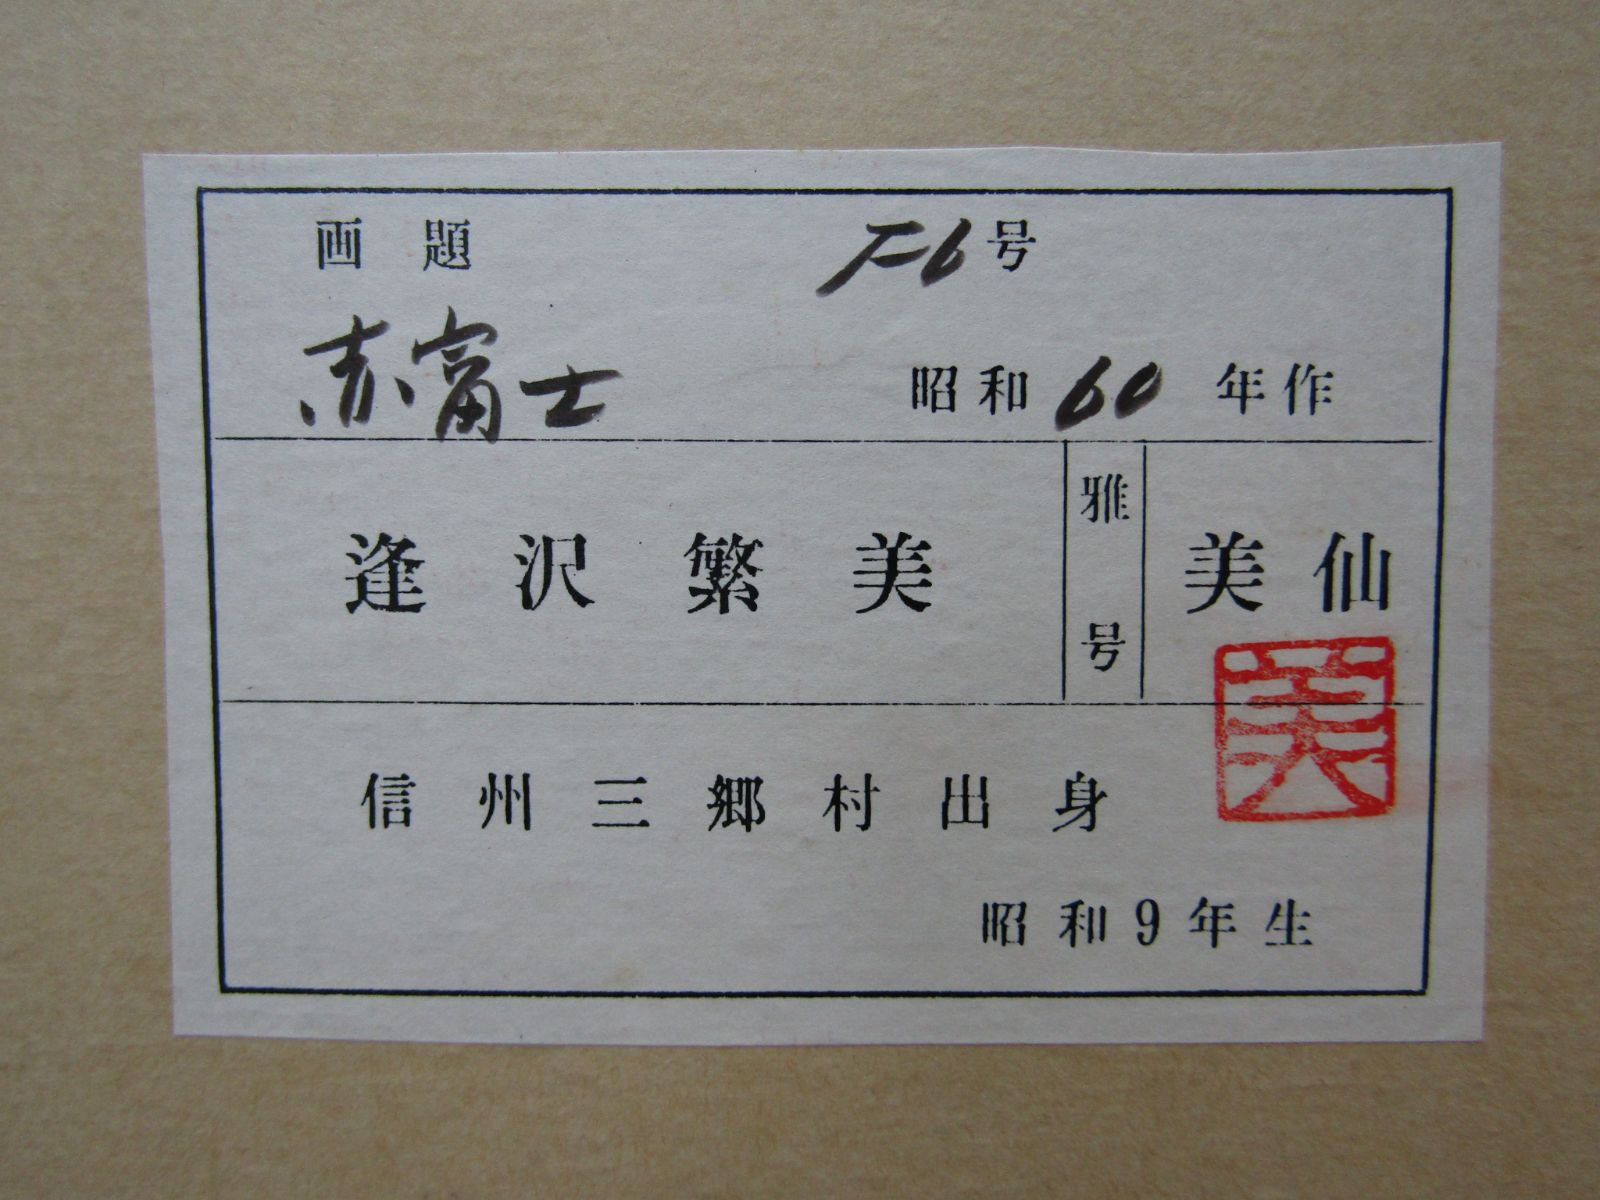 画題 F6号
赤富士
昭和60年作
逢沢繁美 雅号 美仙
美
信州三郷村出身
昭和9年生